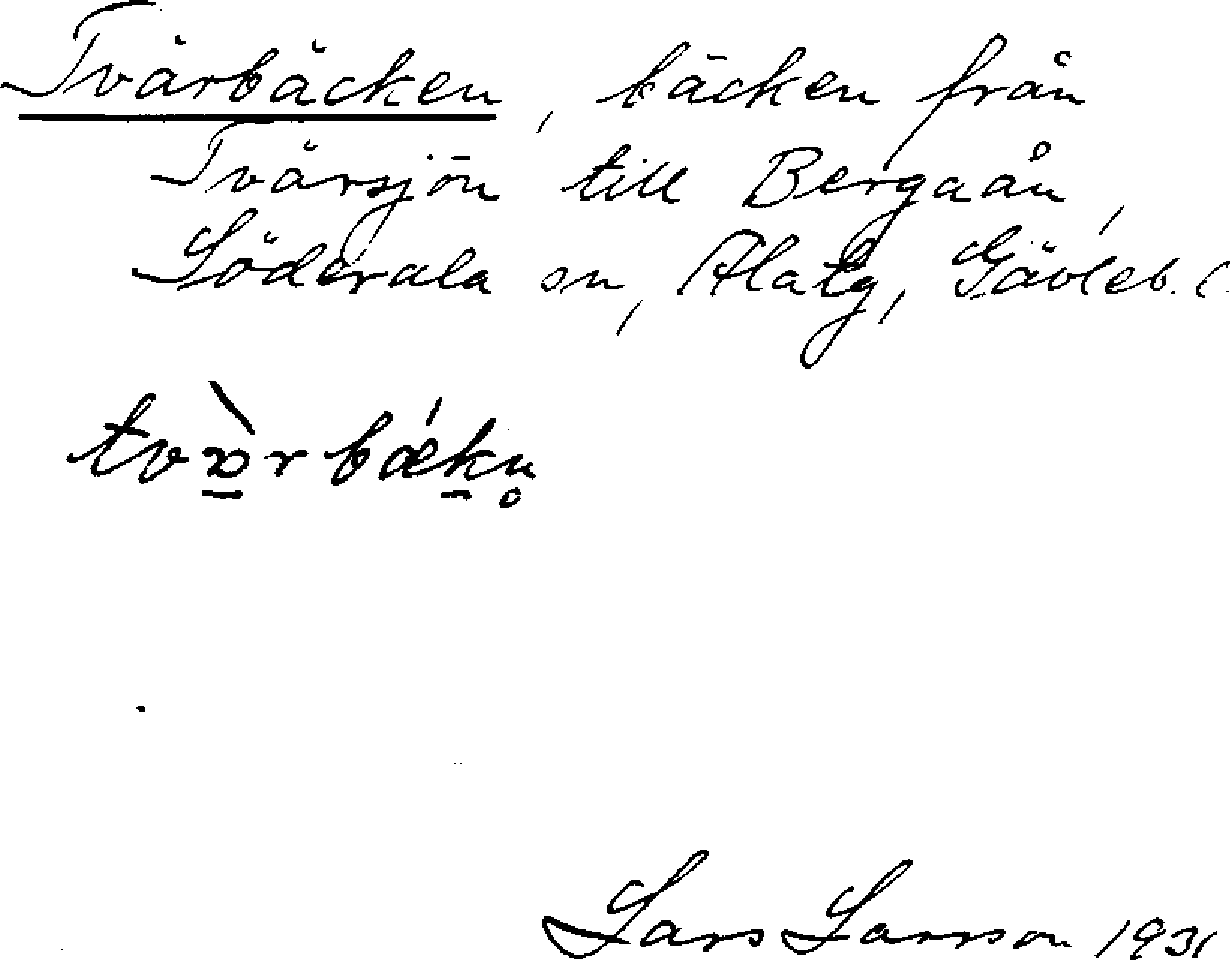 Tvärbäcken, bäcken från
Tvärsjön till Bergaån,
Söderala sn, Alatg, Gävleb. l.
Lars Larsson 1931